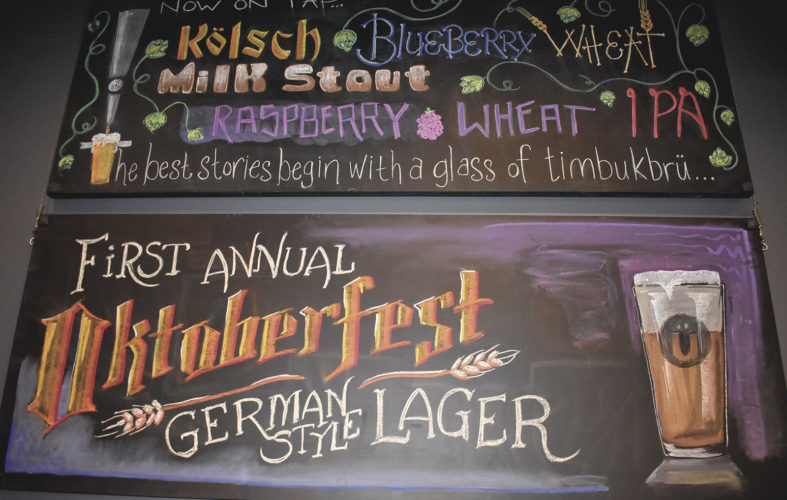 NOW ON TAP...
Kölsch BLUEBERRY WHEAT
Milk Stout
RASPBERRY WHEAT IPA
The best stories begin with a glass of timbukbrü...
FiRST ANNUAL
Oktoberfest
GERMAN STYLE LAGER
Ü